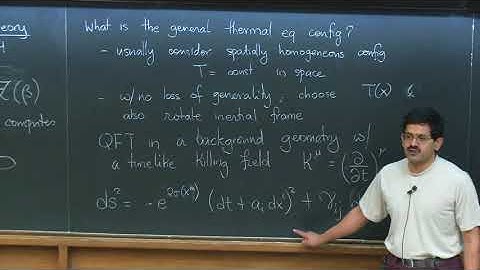 eory
Z(β)
computes
What is the general thermal eq config?
- usually consider spatially homogeneous config
T = const in space
- w/no loss of generality, choose T(x) &
also rotate inertial frame
QFT in a background geometry w/
a timelike Killing field K^μ = (∂/∂t)^μ
ds² = -e^{2σ(x^m)} (dt + a_i dx^i)² + γ_ij